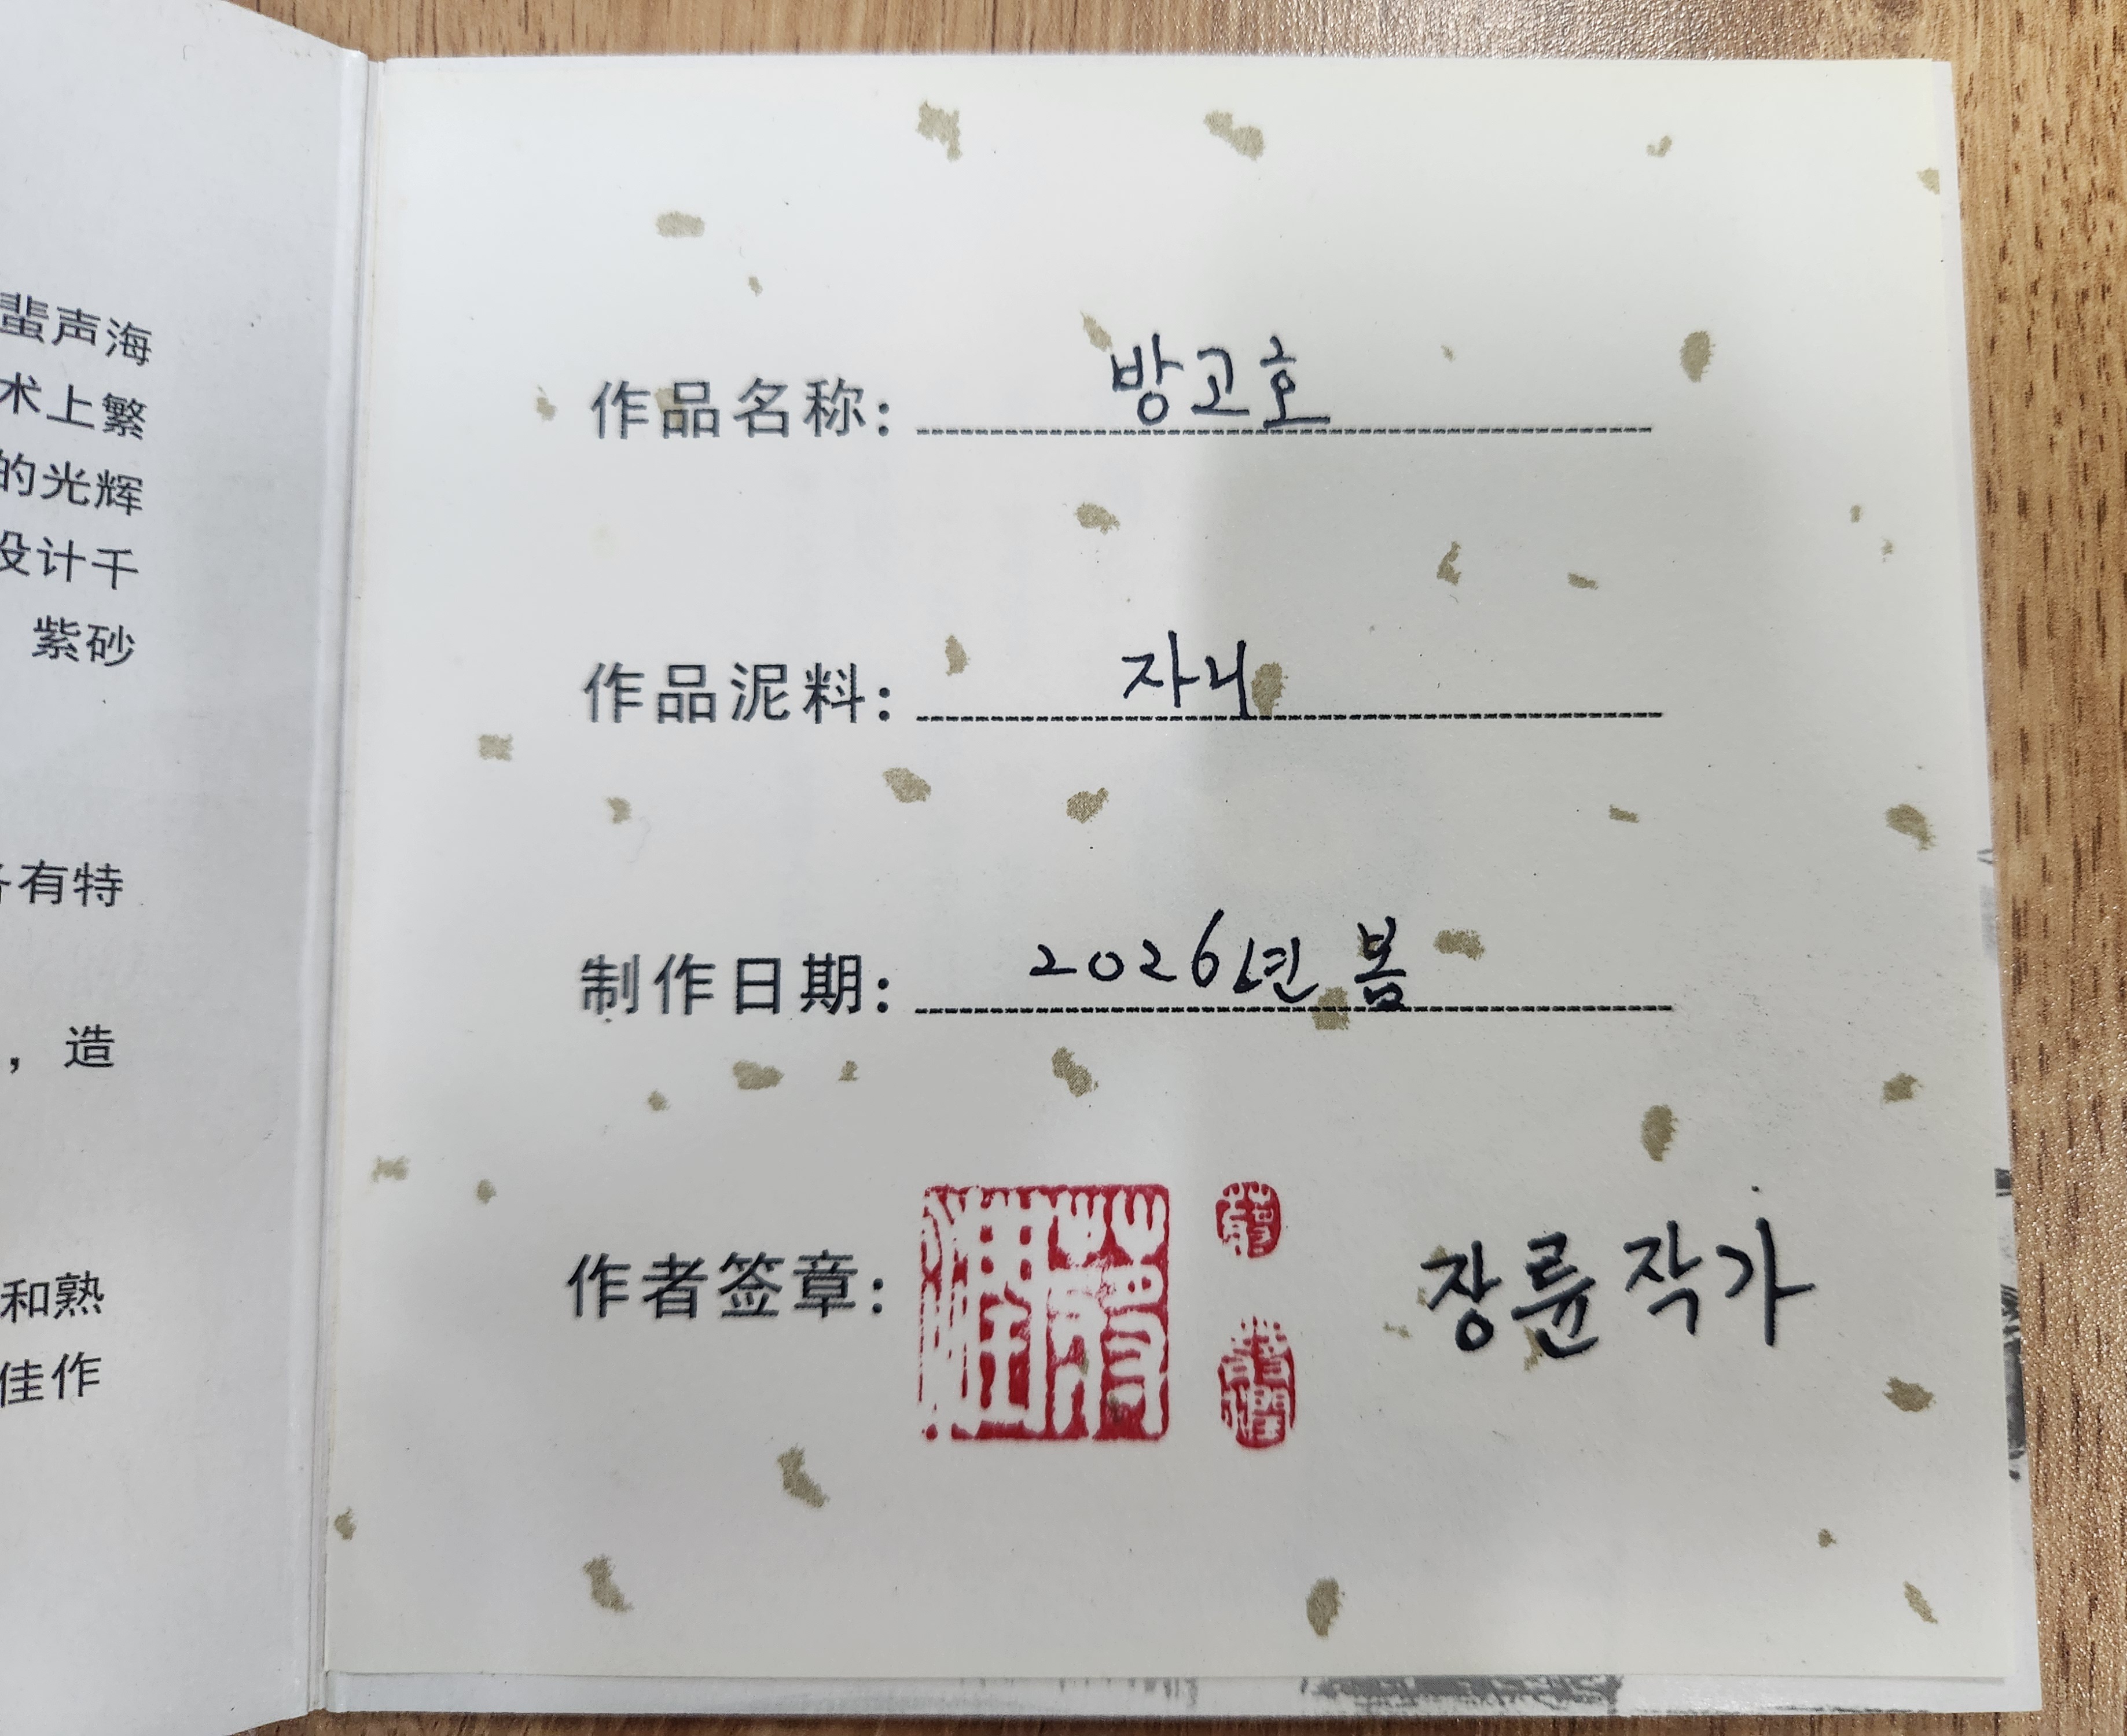 蜚声海
术上繁
的光辉
设计千
紫砂
各有特
，造
和熟
佳作
作品名称： 방고호
作品泥料： 자니
制作日期： 2026년 봄
作者签章： 장륜 작가